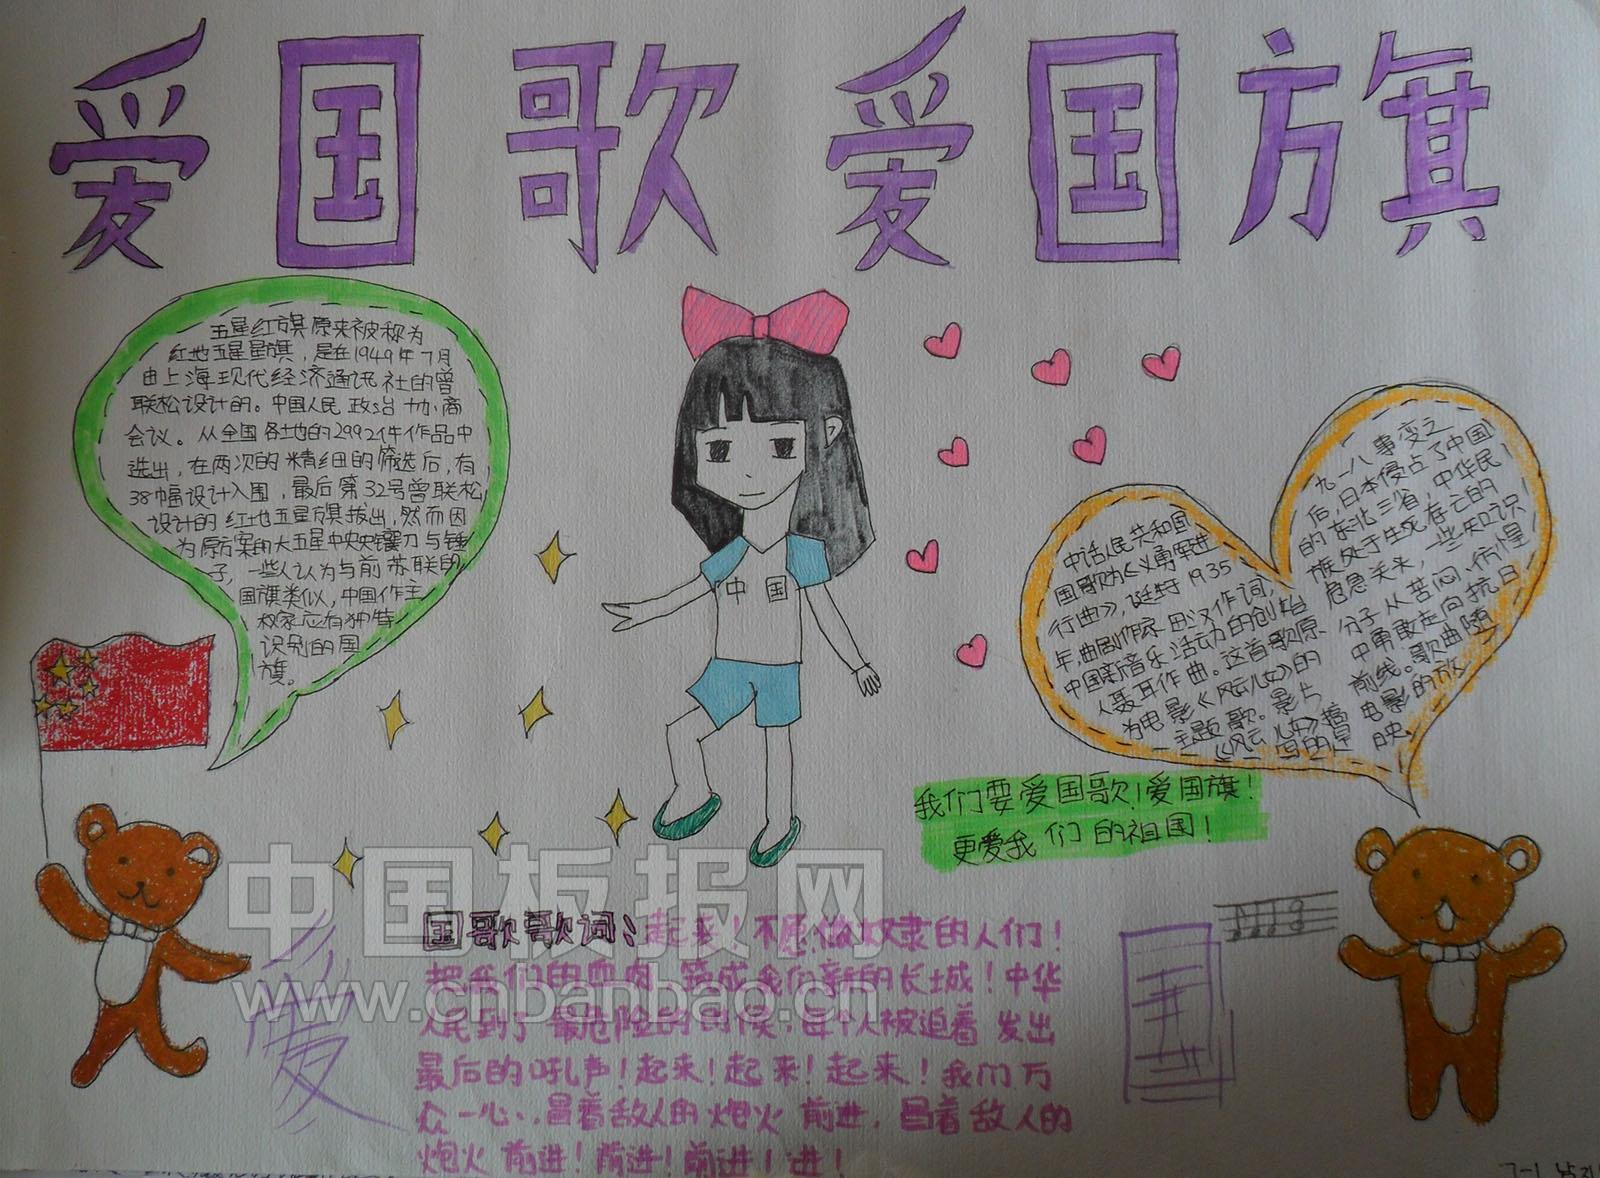 爱国歌 爱国旗
五星红旗原来被称为
红地五星星旗，是在1949年7月
由上海现代经济通讯社的曾
联松设计的。中国人民政治协商
会议。从全国各地的2992件作品中
选出，在两次的精细的筛选后，有
38幅设计入围，最后第32号曾联松
设计的红地五星旗拔出，然而因
为原方案的大五星中央央镶刀与锤
子，一些人认为与前苏联的
国旗类似，中国作主
权家应有独特
识别的国
旗。
中国
中话人民共和国
国歌为《义勇军进
行曲》，诞生于1935
年，由剧作家田汉作词，
中国新音乐活动的创始
人聂耳作曲。这首歌原
为电影《风云儿女》的
主题歌。影片
《风云儿女》描
写的是
九一八事变之
后，日本侵占了中国
的东北三省，中华民
族处于生死存亡的
危急关头，一些知识
分子从苦闷、彷徨
中勇敢走向抗日
前线。歌曲随
电影的放
映。
我们要爱国歌！爱国旗！
更爱我们的祖国！
中国板报网
www.cnbanbao.cn
国歌歌词：起来！不愿做奴隶的人们！
把我们的血肉，筑成我们新的长城！中华
人民到了最危险的时候，每个人被迫着发出
最后的吼声！起来！起来！起来！我们万
众一心，冒着敌人的炮火前进，冒着敌人的
炮火前进！前进！前进！进！
爱
国
7-1